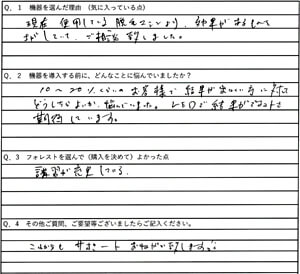 Q. 1　機器を選んだ理由　(気に入っている点)
現在 使用している 脱毛マシンより、効果があるもの
さがしていて、ご
致しました。
Q. 2　機器を導入する前に、どんなことに悩んでいましたか？
10〜20%くらいのお客様で 結果が出ない方に対して
どうしたらよいか、悩んでいました。LEDで結果が
期待しています。
Q. 3　フォレストを選んで（購入を決めて）よかった点
講習が充実している。
Q. 4　その他ご質問、ご要望等ございましたらご記入ください。
これからも サポート お願い致します。